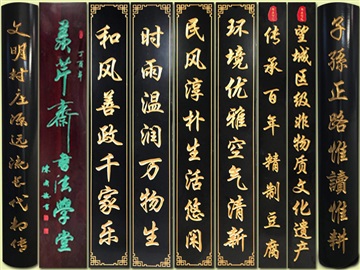 子孫正路惟讀惟耕
望城区级非物质文化遗产
传承百年 精制豆腐
环境优雅空气清新
民风淳朴生活悠闲
时雨温润万物生
和风善政千家乐
丁酉年
芹斋书法學堂
文明村庄源远流长代相传